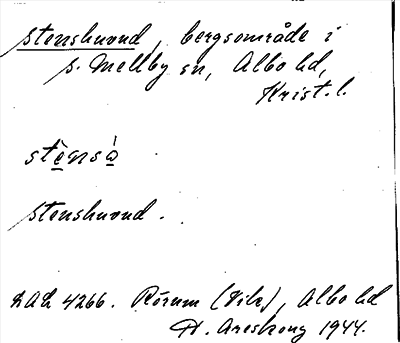 stenshuvud, bergsområde i
s. Mellby sn, Albo hd,
Krist. l.
stensö
stenshuvud.
LAL 4266. Rörum (Vik), Albo hd
A. Areskoug 1944.